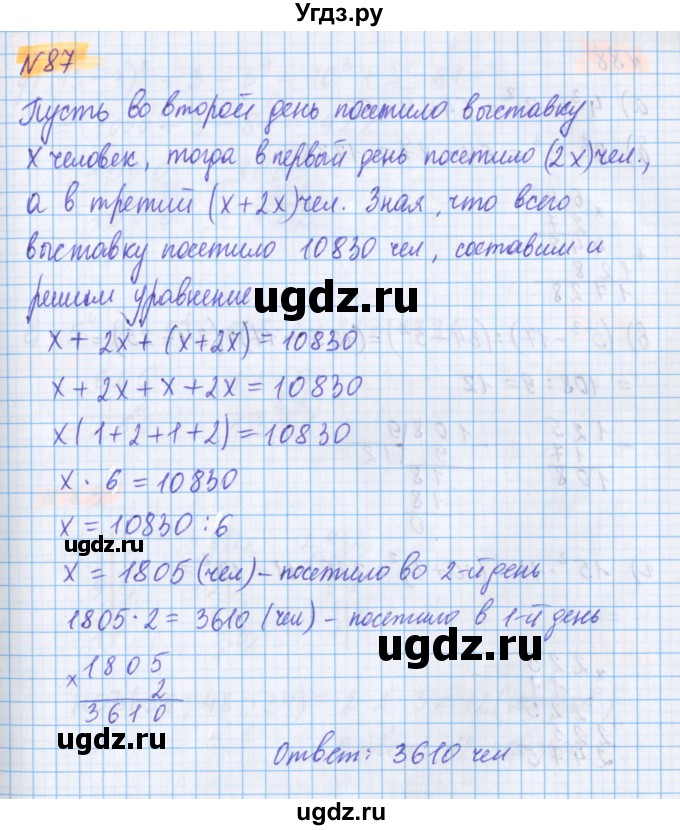 Угдз.ру
N87
Пусть во второй день посетило выставку
х человек, тогда в первый день посетило (2х) чел.,
а в третий (х+2х) чел. Зная, что всего
выставку посетило 10830 чел, составим и
решим уравнение
ugdz.ru
х + 2х + (х+2х) = 10830
х + 2х + х + 2х = 10830
х(1+2+1+2) = 10830
х · 6 = 10830
х = 10830 : 6
ugdz.ru
ugdz.ru
х = 1805 (чел) – посетило во 2-й день
1805 · 2 = 3610 (чел) – посетило в 1-й день
ugdz.ru
х 1805
2
3610
ugdz.ru
Ответ: 3610 чел
ugdz.ru